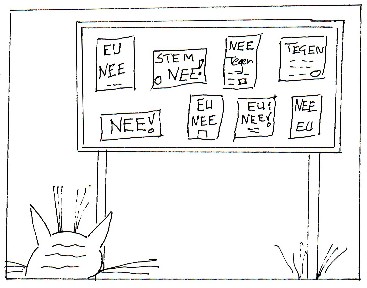 EU
NEE
STEM
NEE!
NEE
Tegen
TEGEN
NEE!
EU
NEE
EU!
NEE!
NEE
EU